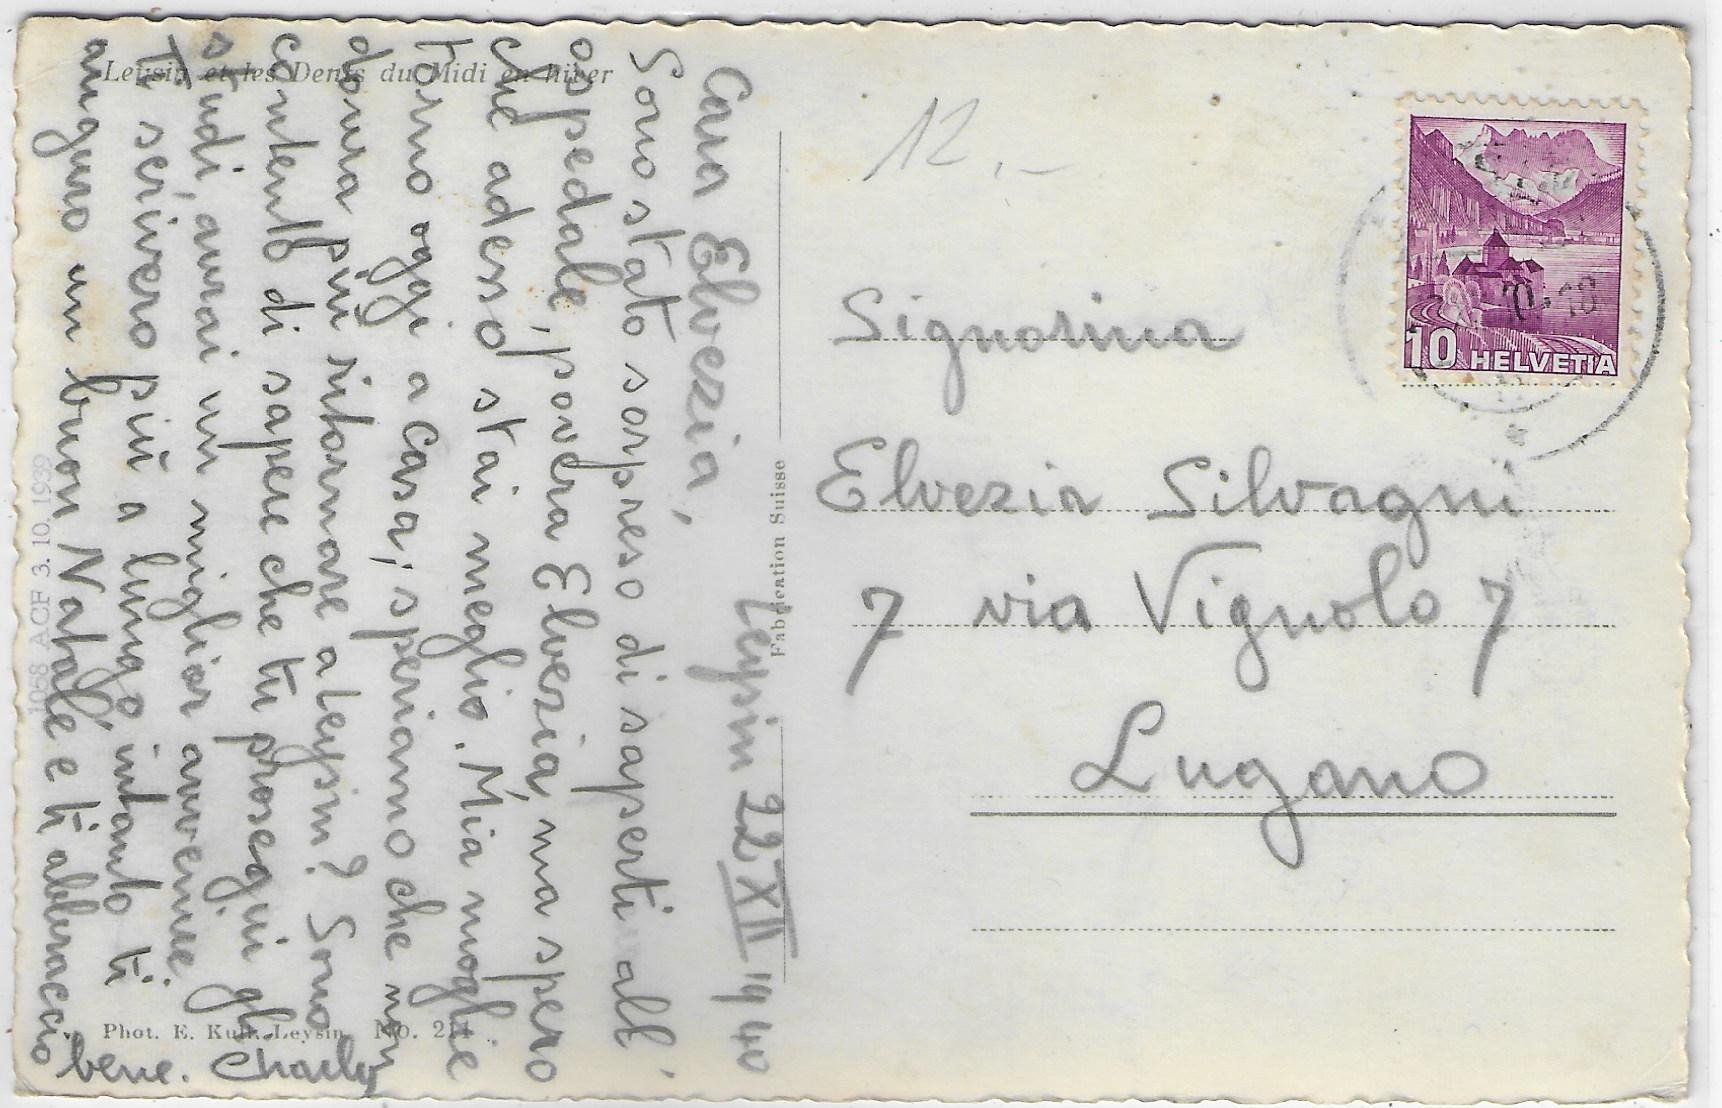 Leysin et les Dents du Midi en hiver
12.-
10 HELVETIA
Leysin 22 XII 1940
Cara Elvezia,
Sono stato sorpreso di saperti all'
ospedale, povera Elvezia, ma spero
che adesso stai meglio. Mia moglie
torno oggi a casa; speriamo che non
dovra più ritornare a Leysin? Sono
contento di sapere che tu prosegui gli
studi, avrai un miglior avvenire.
Ti scrivero più a lungo intanto ti
auguro un buon Natale e ti abbraccio
bene. Charly
Signorina
Elvezia Silvagni
7 via Vignolo 7
Lugano
Fabrication Suisse
1058 ACF 3. 10. 1939
Phot. E. Leysin No.